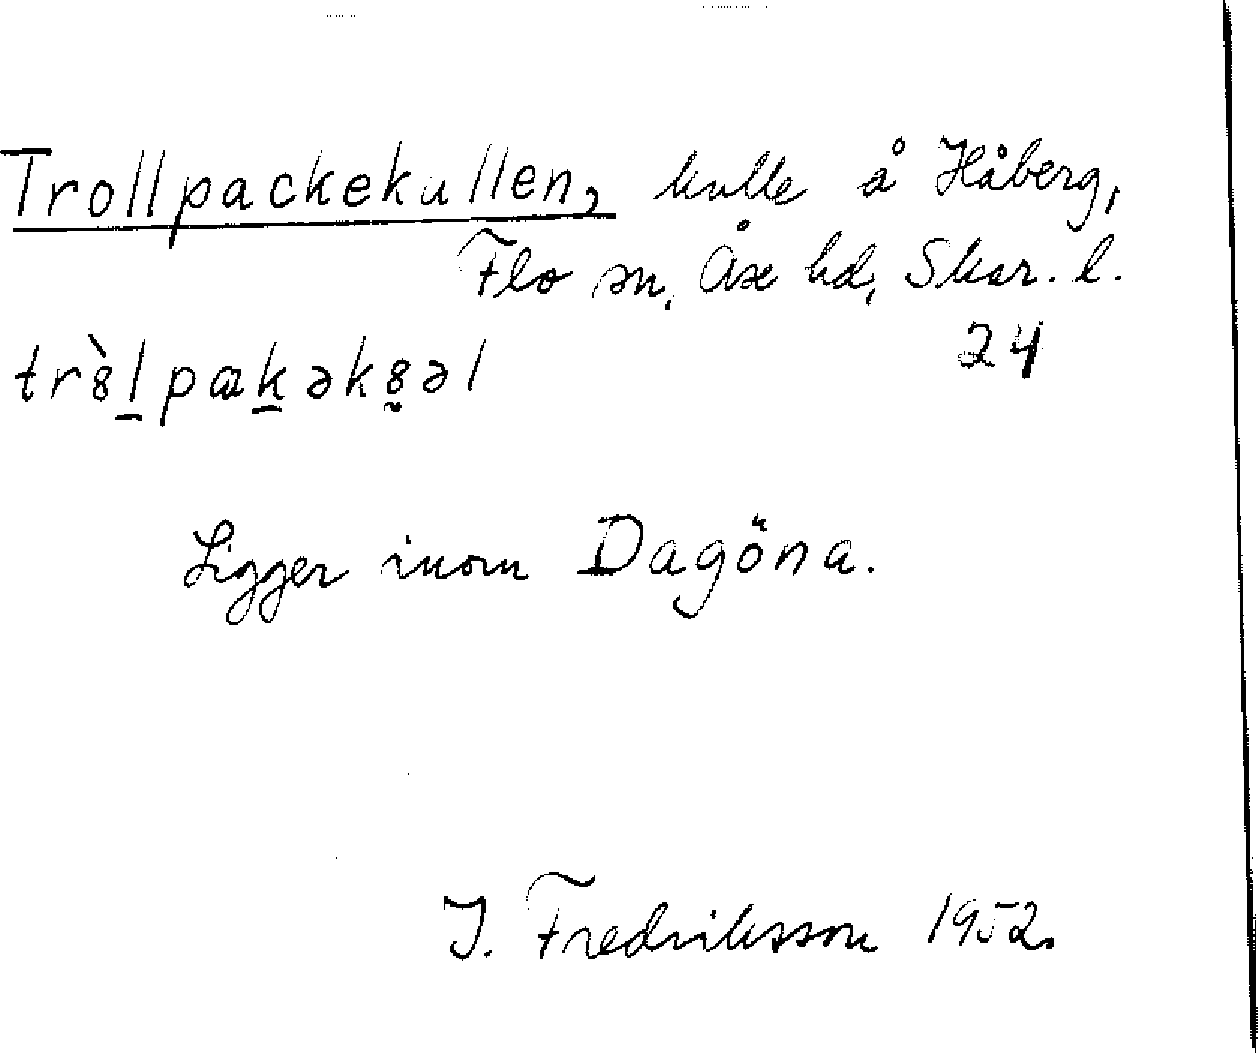 Trollpackekullen, kulle å Håberg,
Flo sn, Åse hd, Skar. l.
24
tr8̀l̠pak̠ək8̰əl
Ligger inom Dagöna.
I. Fredriksson 1952.